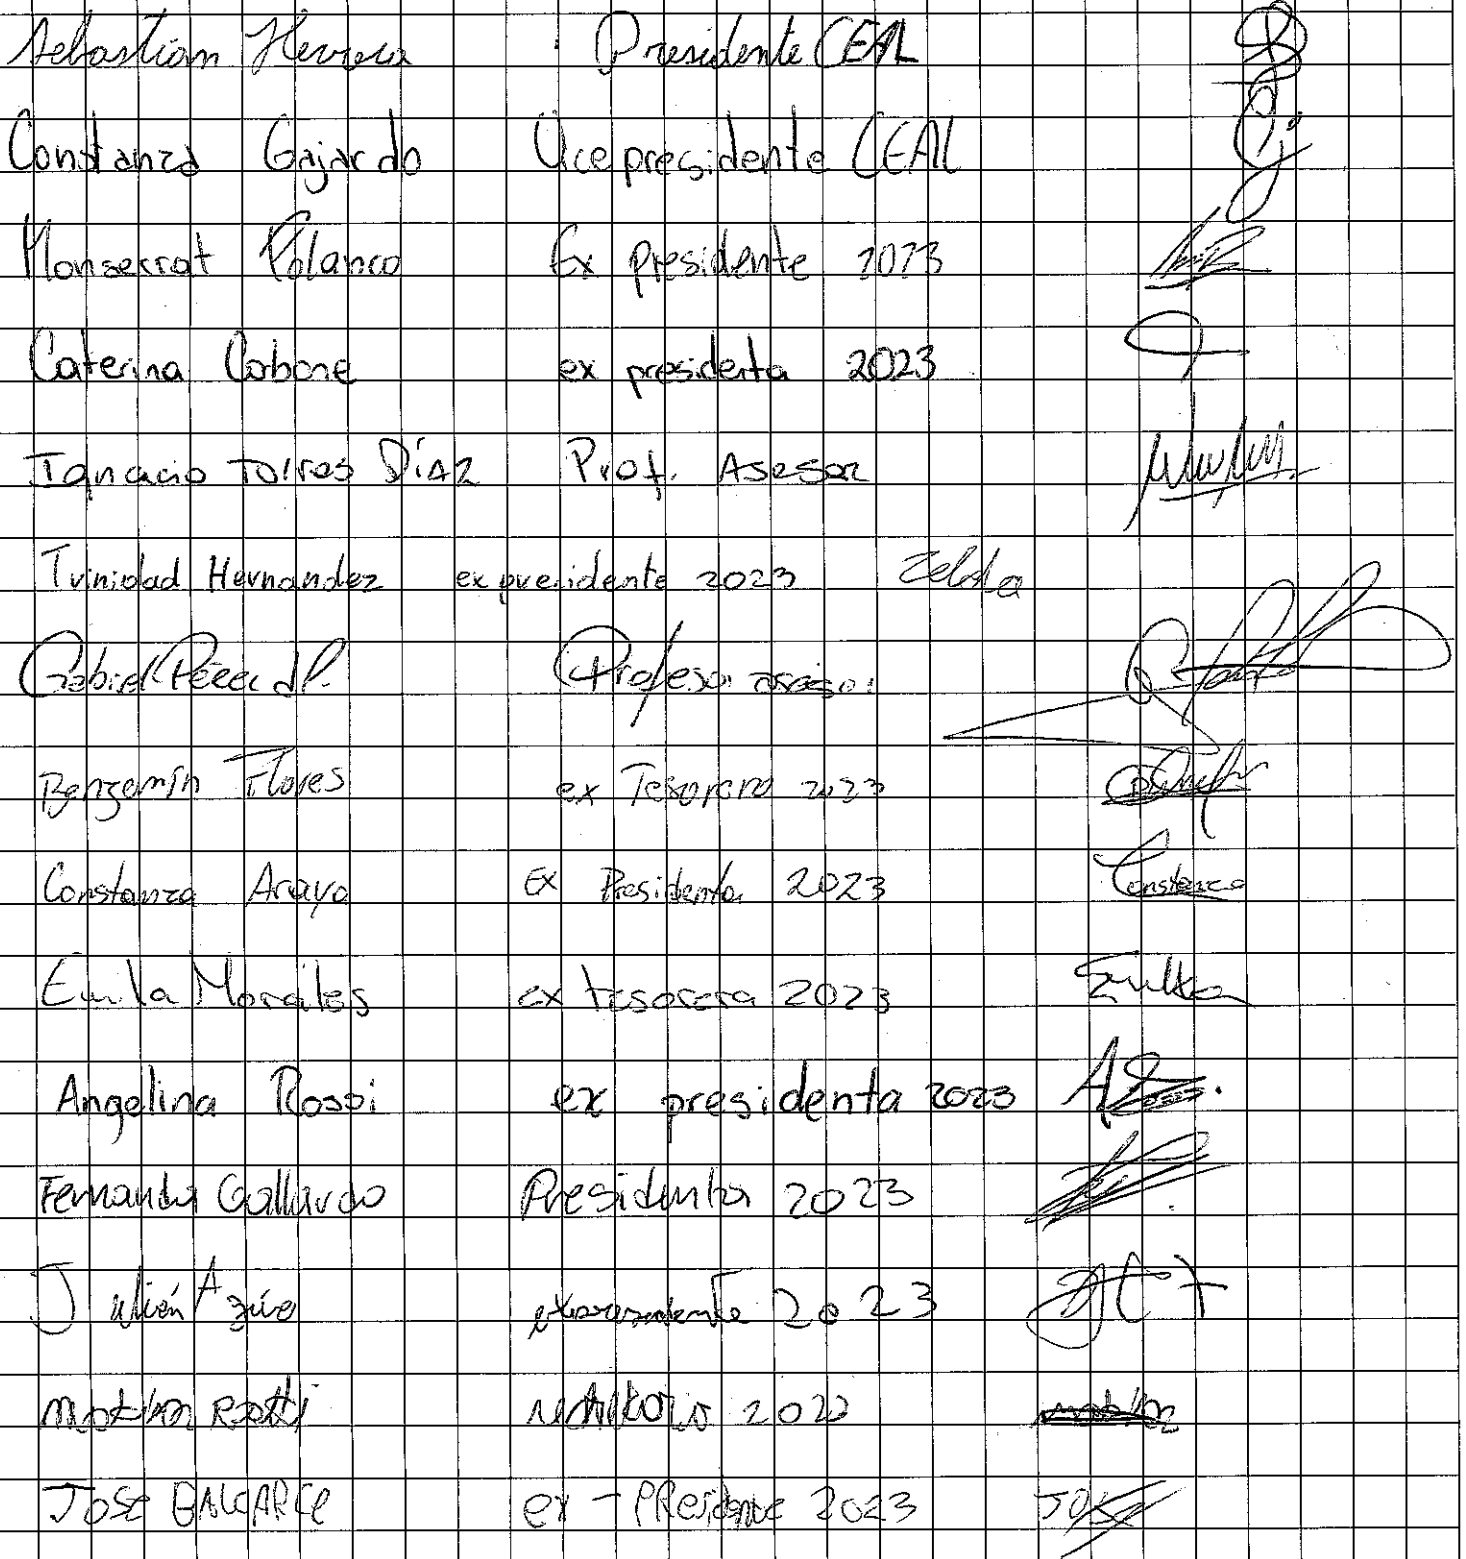 Sebastian Herrera Presidente CEAL
Constanza Gajardo Vicepresidente CEAL
Monserrat Polanco Ex presidente 2023
Caterina Carbone ex presidenta 2023
Ignacio Torres Díaz Prof. Asesor
Trinidad Hernandez ex presidente 2023 Zelda
Gabriel Pérez d P. Profesor asesor
Benjamín Flores ex Tesorero 2023
Constanza Araya Ex Presidenta 2023 Constanza
Emilia Morales ex tesorera 2023 Emilia
Angelina Rossi ex presidenta 2023
Fernanda Gallardo Presidenta 2023
Julián expresidente 2023
2023
Jose BALCARCE ex-PResidente 2023 Jose